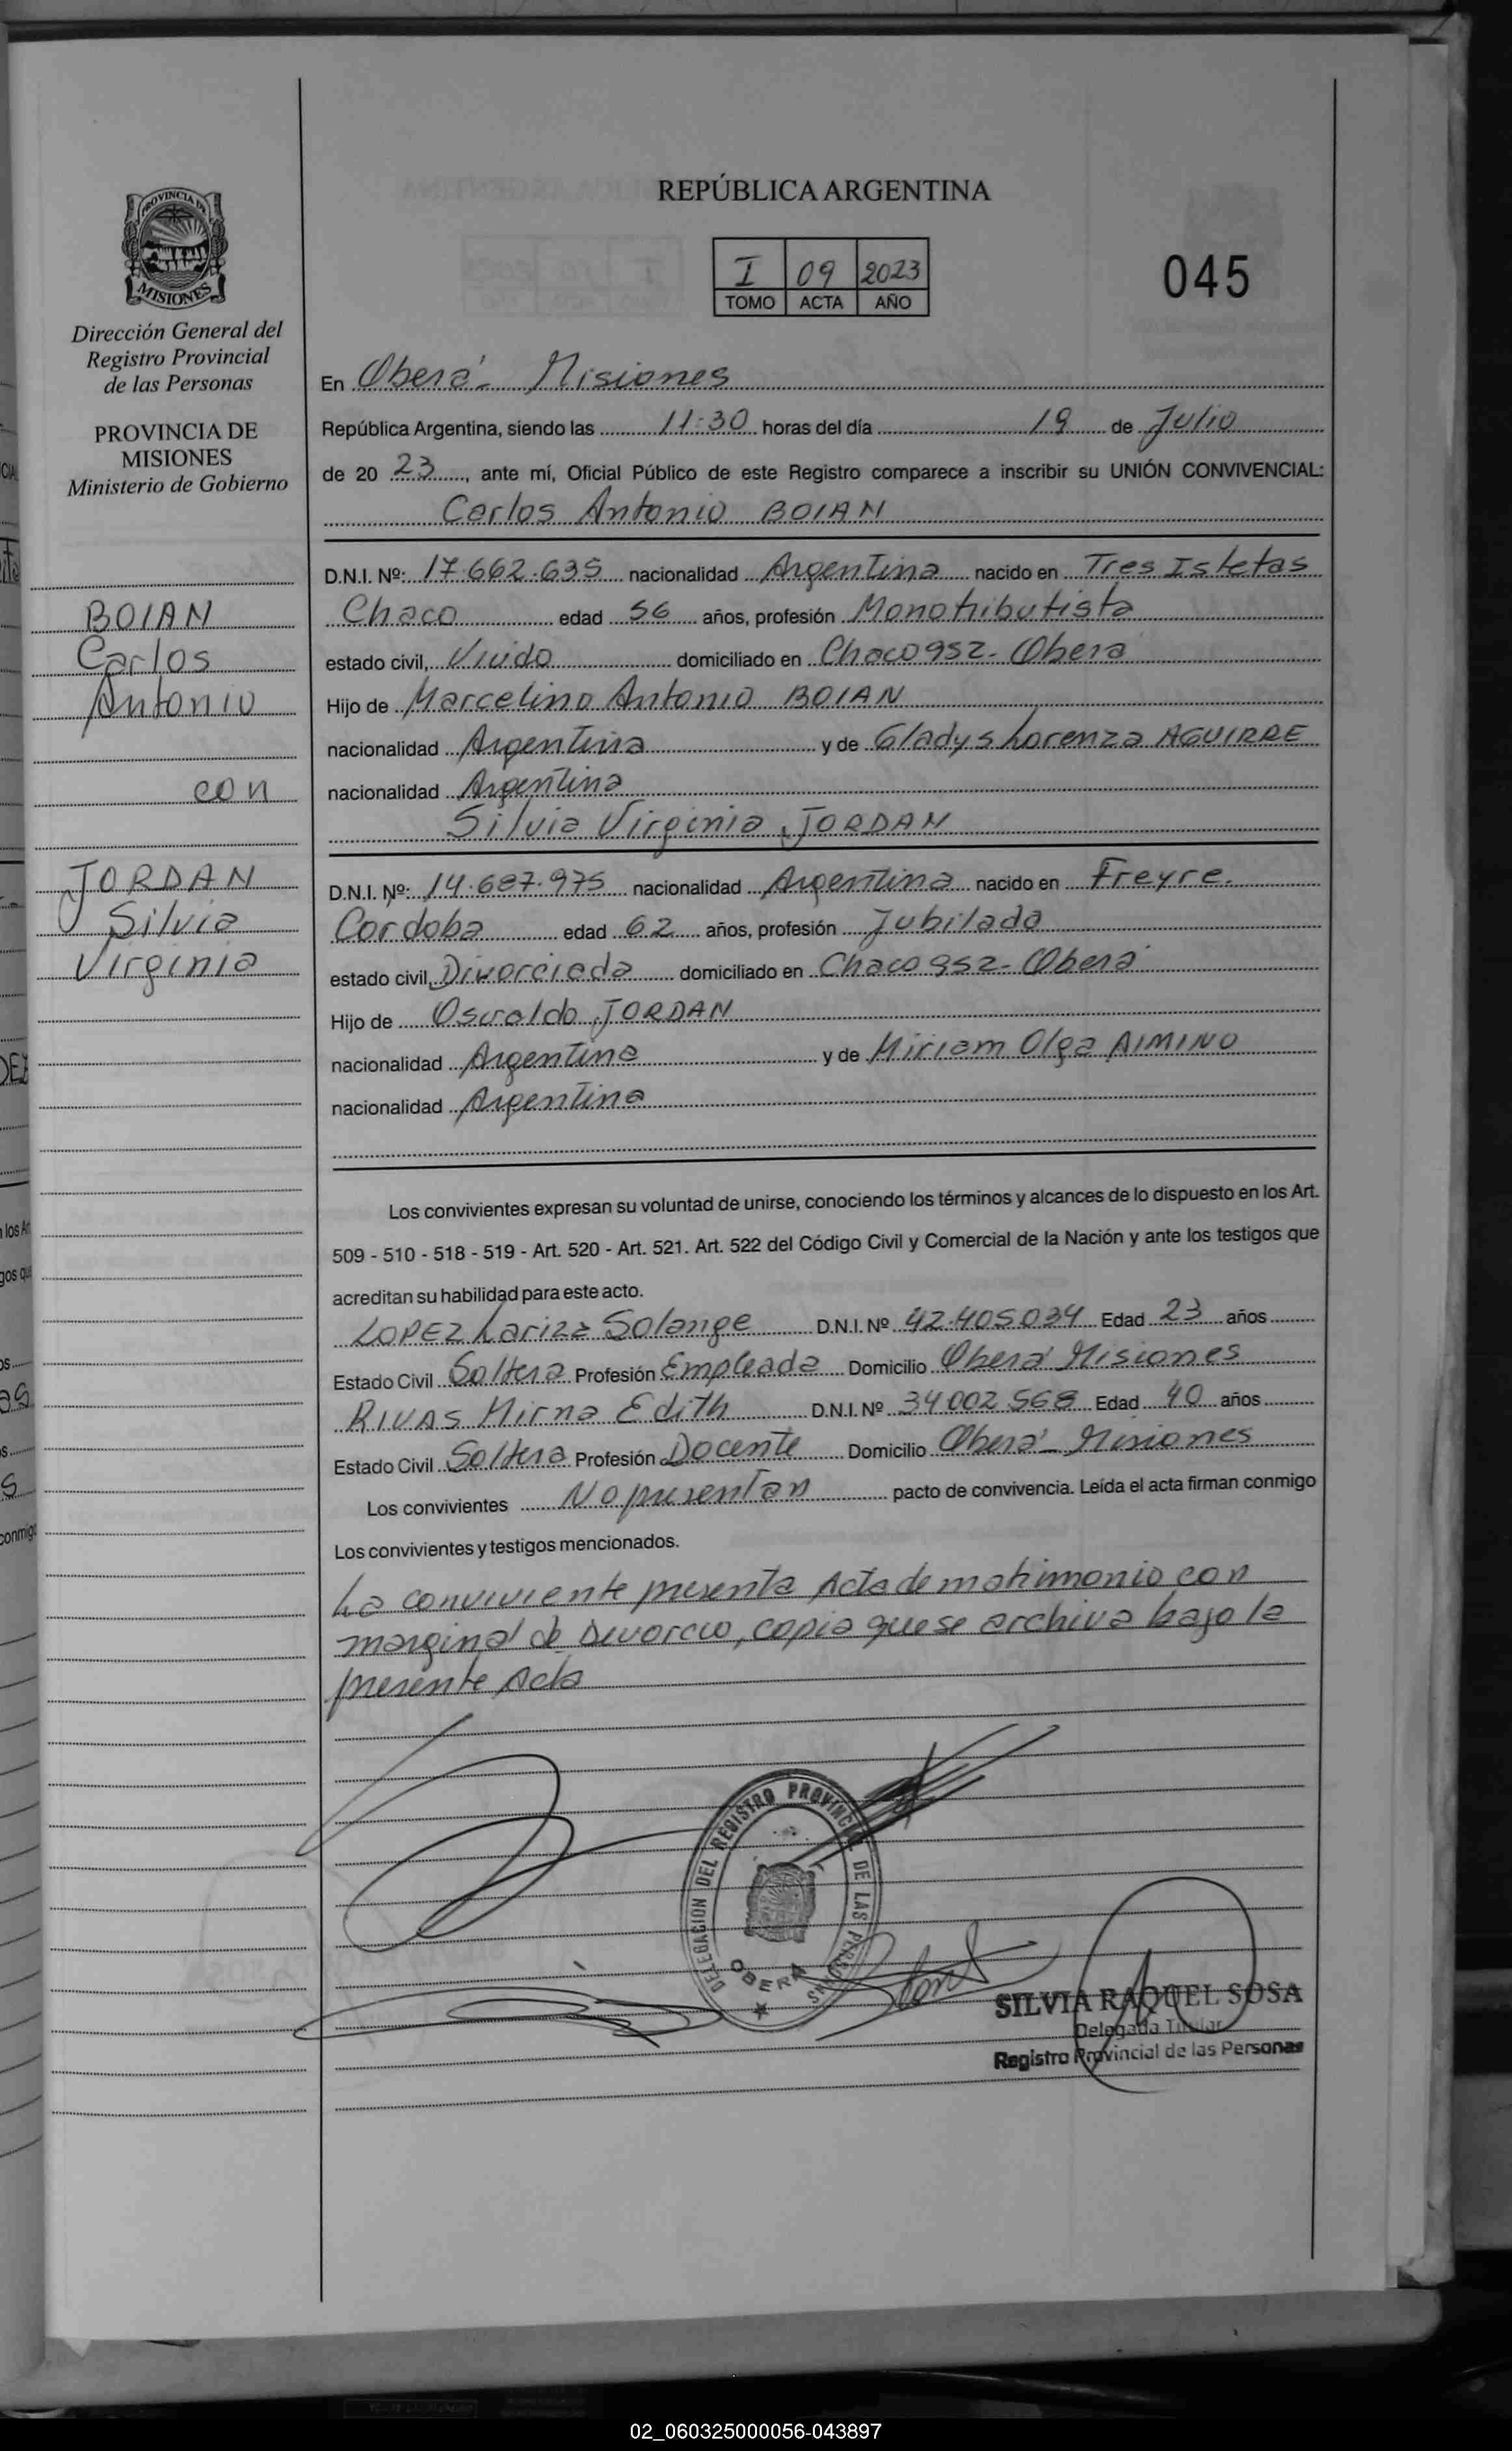 PROVINCIA DE
MISIONES
Dirección General del
Registro Provincial
de las Personas
PROVINCIA DE
MISIONES
Ministerio de Gobierno
BOIAN
Carlos
Antonio
con
JORDAN
Silvia
Virginia
REPÚBLICA ARGENTINA
I 09 2023
TOMO ACTA AÑO
045
En Oberá - Misiones
República Argentina, siendo las 11:30 horas del día 19 de Julio
de 20 23, ante mí, Oficial Público de este Registro comparece a inscribir su UNIÓN CONVIVENCIAL:
Carlos Antonio BOIAN
D.N.I. Nº: 17.662.635 nacionalidad Argentina nacido en Tres Isletas
Chaco edad 56 años, profesión Monotributista
estado civil, Viudo domiciliado en Chaco 952 - Oberá
Hijo de Marcelino Antonio BOIAN
nacionalidad Argentina y de Gladys Lorenza AGUIRRE
nacionalidad Argentina
Silvia Virginia JORDAN
D.N.I. Nº: 14.687.975 nacionalidad Argentina nacido en Freyre.
Cordoba edad 62 años, profesión Jubilada
estado civil, Divorciada domiciliado en Chaco 952 - Oberá
Hijo de Osvaldo JORDAN
nacionalidad Argentina y de Miriam Olga AIMINO
nacionalidad Argentina
Los convivientes expresan su voluntad de unirse, conociendo los términos y alcances de lo dispuesto en los Art.
509 - 510 - 518 - 519 - Art. 520 - Art. 521. Art. 522 del Código Civil y Comercial de la Nación y ante los testigos que
acreditan su habilidad para este acto.
LOPEZ Lariza Solange D.N.I. Nº 42.405.034 Edad 23 años
Estado Civil Soltera Profesión Empleada Domicilio Oberá Misiones
RIVAS Mirna Edith D.N.I. Nº 34.002.568 Edad 40 años
Estado Civil Soltera Profesión Docente Domicilio Oberá - Misiones
Los convivientes No presentan pacto de convivencia. Leída el acta firman conmigo
Los convivientes y testigos mencionados.
La conviviente presenta Acta de matrimonio con
marginal de Divorcio, copia que se archiva bajo la
presente Acta
DELEGACION DEL REGISTRO PROVINCIAL DE LAS PERSONAS
OBERA
SILVIA RAQUEL SOSA
Delegada Titular
Registro Provincial de las Personas
02_060325000056-043897